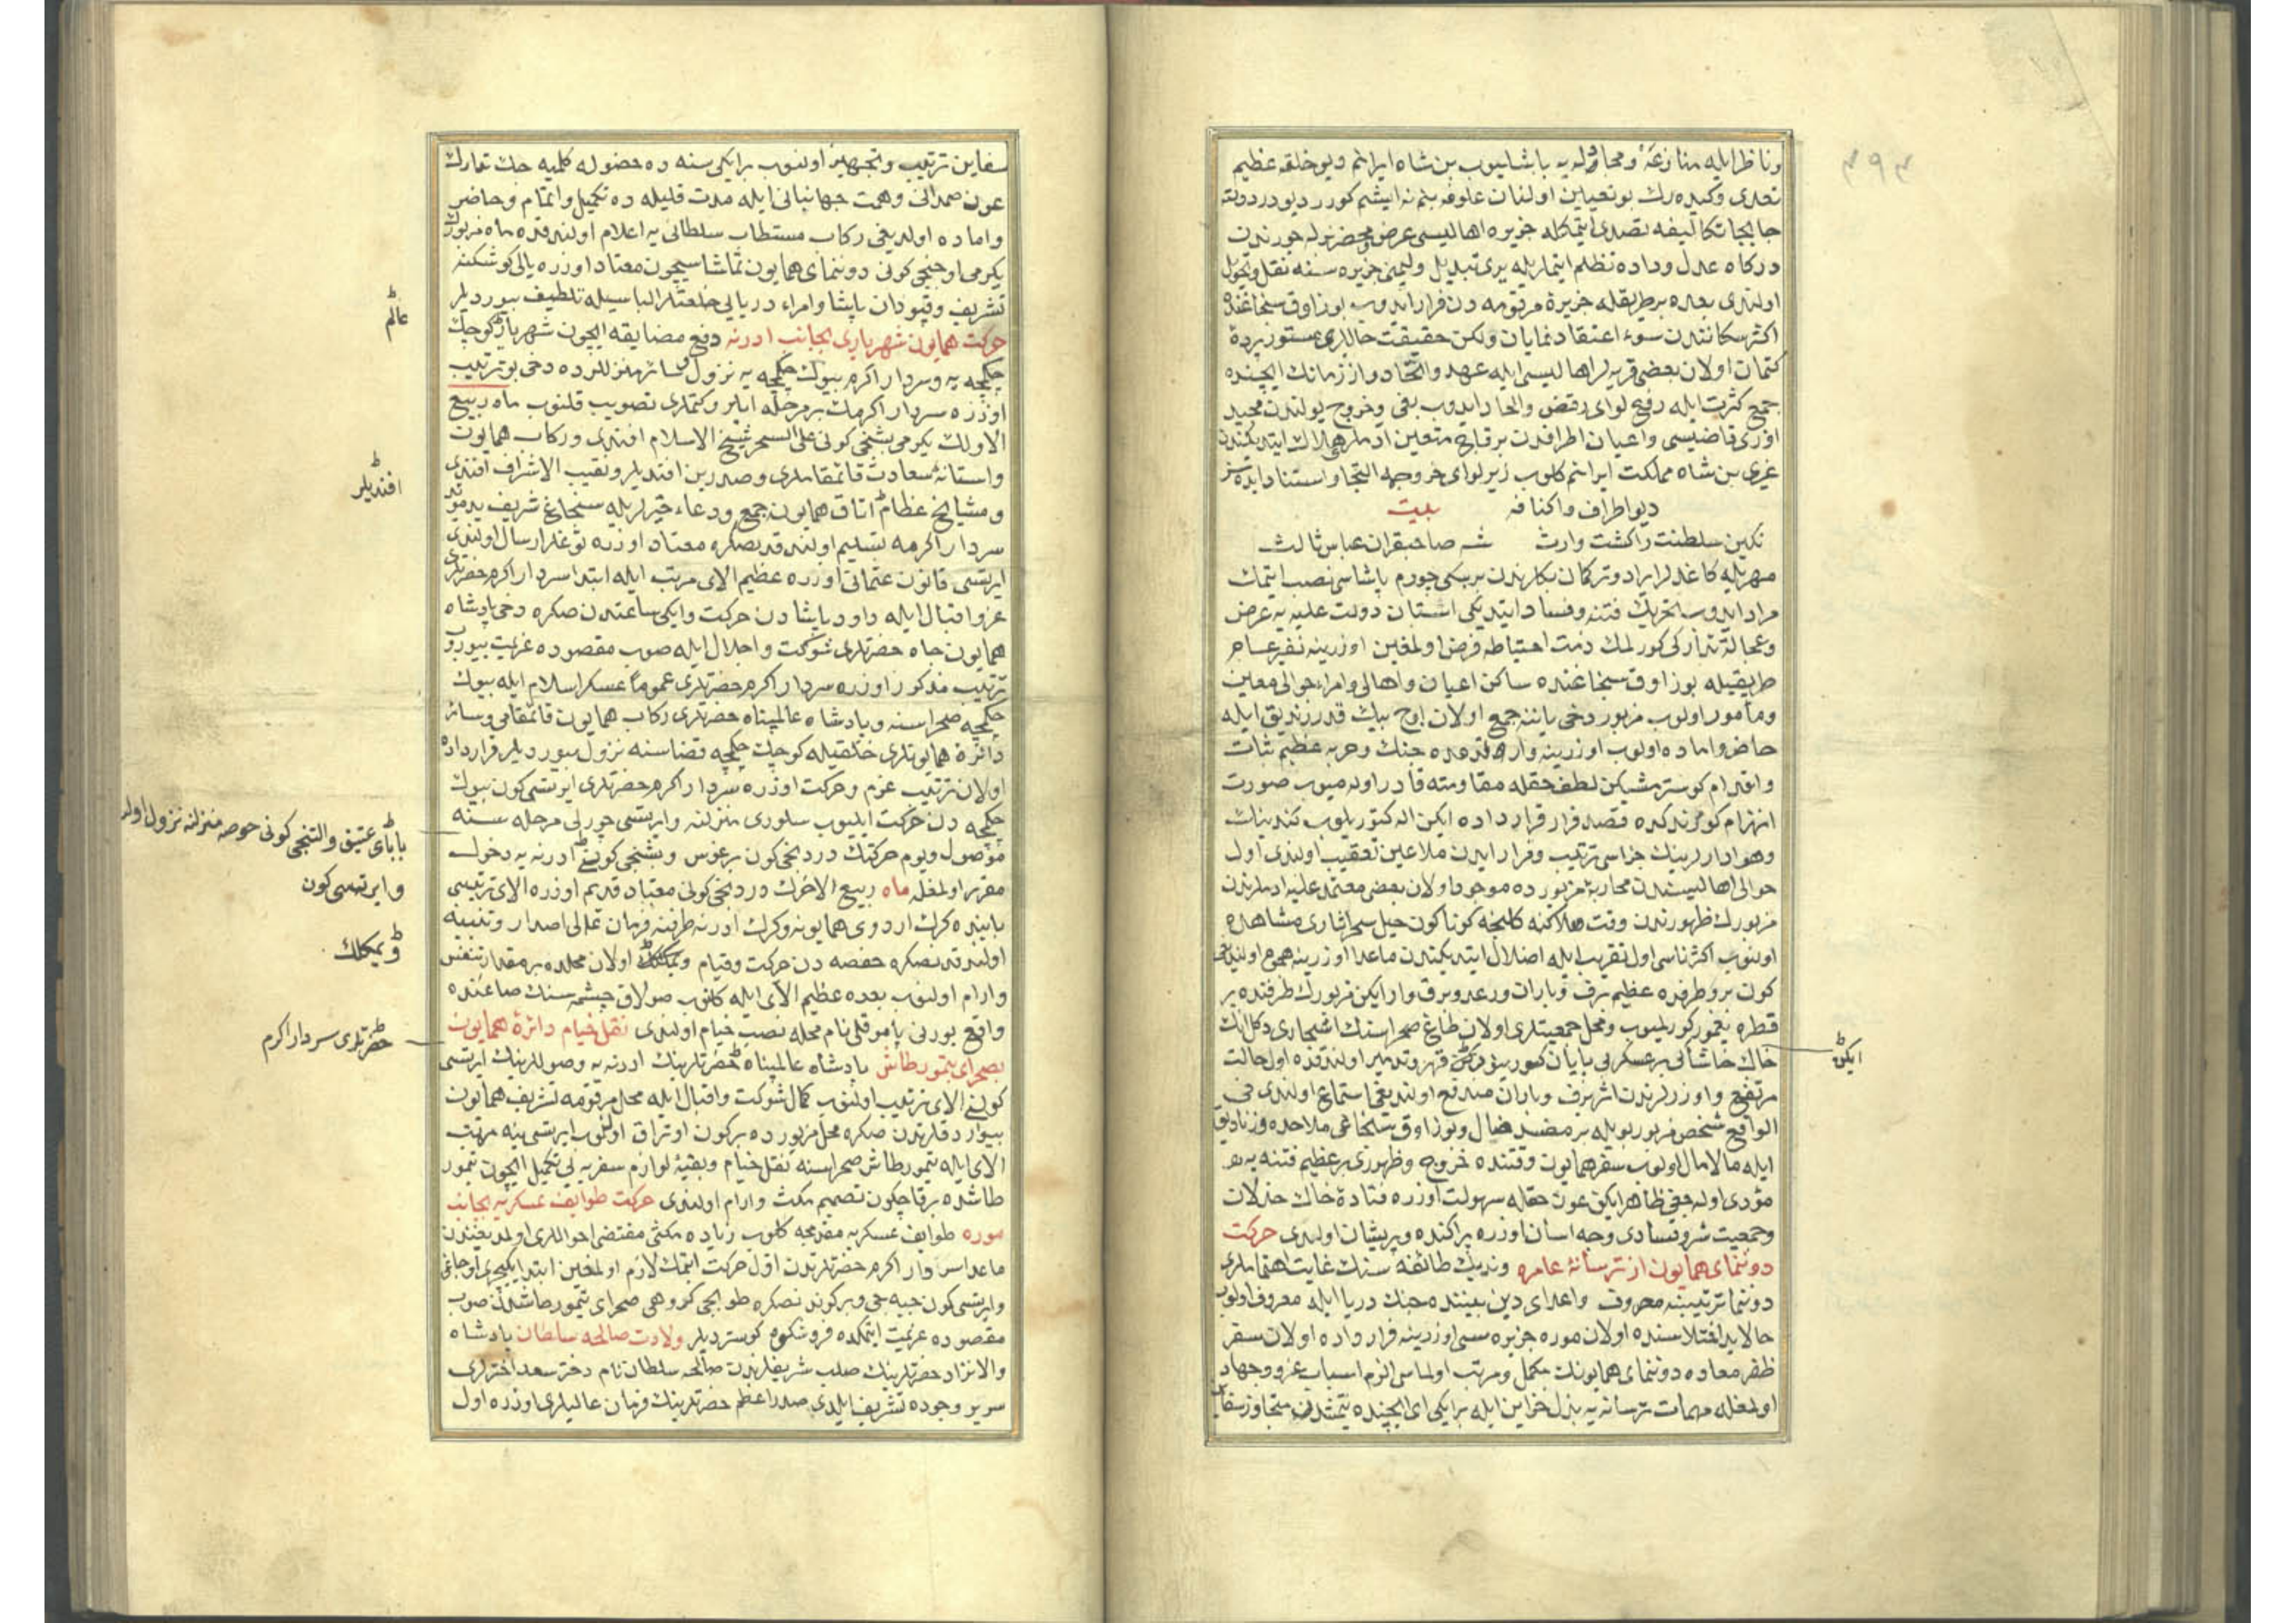 ۴۹۳
و ناظر ایله منازعۀ و مجادله یه باشلیوب بن شاه ایرانم دیو خلقه عظیم
تعدی و کیده رك بو تعیین اولنان علوفه بنم نه ایشم کورر دیو دردولته
جابجا تکالیفه تصدی ایتمکله جزیره اهالیسی عرض و محضرلر له جورندن
درکاه عدل و داده تظلم ایتملریله یری تبدیل و لیمنی جزیره سنه نقل و تحویل
اولندی بعده بر طریقله جزیرۀ مرقومه دن فرار ایدوب بوزاوق سنجاغنده
اکثر سکانندن سوء اعتقاد نمایان ولکن حقیقت حاللری مستور پردۀ
کتمان اولان بعضی قریه لر اهالیسی ایله عهد و اتحاد و از زمانك ایچنده
جمع کثرت ایله رفع لوای رفض و الحاد ایدوب بغی و خروج یولندن مجید
اوزی قاضیسی و اعیان اطرافدن بر قاچ متعین ادملر هلاك ایتدیکندن
غیری بن شاه مملکت ایرانم کلوب زیر لوای خروجمه التجا و استناد ایده سز
دیو اطراف و اکنافه بیت
نکین سلطنت را کشت وارث شه صاحبقران عباس ثالث
مهریله کاغدلر ایراد و ترکمان بکلرندن بریسکی چورم پاشاسی نصب ایتمك
مراد ایدوب تحریك فتنه و فساد ایتدیکی استان دولت علیه یه عرض
و عجالة تدارکی کورلمك ذمت احتیاطه فرض اولمغین اوزرینه نفیر عام
طریقیله بوزاوق سنجاغنده ساکن اعیان و اهالی و امراء حوالی معین
و مأمور اولوب مزبور دخی یاننه جمع اولان اوچ بیك قدر زندیق ایله
حاضر و اماده اولوب اوزرینه وارلدقده جنك و حربه عظیم ثبات
و اقدام کوسترمشیکن لطف حقله مقاومته قادر اوله میوب صورت
انهزام کورندکده قصد فرار قرارداده ایکن اله کتوریلوب کندینك
و هوادارلرینك جزاسی ترتیب و فرار ایدن ملاعین تعقیب اولندی اول
حوالی اهالیسندن محاربۀ مزبورده موجود اولان بعضی معتمد علیه ادملرندن
مزبورك ظهورندن وقت هلاکنه کلنجه کوناکون حیل سحر اثاری مشاهده
اولنوب اکثر ناسی اول تقریب ایله اضلال ایتدیکندن ماعدا اوزرینه هجوم اولندیغی
کون بر طرفده عظیم برف و باران و رعد و برق وار ایکن مزبورك طرفنده بر
قطره یغمور کورلمیوب و محل جمعیتلری اولان طاغ صحراسنك اشجاری دکل انك
خاك خاشاکی بر عسکر بی پایان کورینور قهر و تدمیر اولندقده اول حالت
ایکن
مرتفع و اوزرلرندن اثر برف و باران مندفع اولدیغی استماع اولندی فی
الواقع شخص مزبور بویله بر مفسد ضال و بوزاوق سنجاغی ملاحده و زنادیق
ایله مالامال اولوب سفر همایون وقتنده خروج و ظهوری بر عظیم فتنه یه
مؤدی اوله جغی ظاهر ایکن عون حقله سهولت اوزره فتادۀ خاك خذلان
و جمعیت شر و فسادی وجه اسان اوزره پراکنده و پریشان اولدی حرکت
دوننمای همایون از ترسانۀ عامره وندیك طائفه سنك غایت اهتماملری
دوننما ترتیبنه معروف و اعدای دین بیننده جنك دریا ایله معروف اولوب
حالا ید اختلاسنده اولان موره جزیره سی اوزرینه قرارداده اولان سفر
ظفر معاوده دوننمای همایونك مکمل و مرتب اولماسی الزم اسباب غزو و جهاد
اولمغله مهمات ترسانه یه بذل خزاین ایله بر ایکی ای ایچنده یتمشدن متجاوز سفاین
سفاین ترتیب و تجهیز اولنوب بر ایکی سنه ده حصوله کلمیه جك تدارك
عون صمدانی و همت جهانبانی ایله مدت قلیله ده تکمیل و اتمام و حاضر
و اماده اولدیغی رکاب مستطاب سلطانی یه اعلام اولندقده ماه مزبورك
یکرمی اوچنجی کونی دوننمای همایون تماشاسیچون معتاد اوزره یالی کوشکنه
تشریف و قپودان پاشا و امراء دریایی خلعتلر الباسیله تلطیف بیوردیلر
حرکت همایون شهریاری بجانب ادرنه دفع مضایقه ایچون شهریار کوچك
عالم
چکمجه یه و سردار اکرم بیوك چکمجه یه نزول و سائر منزللرده دخی بو ترتیب
اوزره سردار اکرمك بر مرحله ایلرو کتملری تصویب قلنوب ماه ربیع
الاولك یکرمی بشنجی کونی علی السحر شیخ الاسلام افندی و رکاب همایون
و استانۀ سعادت قائمقاملری و صدرین افندیلر و نقیب الاشراف افندی
افندیلر
و مشایخ عظام اتاق همایون جمع و دعاء خیرلریله سنجاغ شریف ید مؤید
سردار اکرمه تسلیم اولندقدنصکره معتاد اوزره توغلر ارسال اولندی
ایرتسی قانون عثمانی اوزره عظیم الای مرتب ایله ابتدا سردار اکرم حضرتلری
عز و اقبال ایله داود پاشادن حرکت و ایکی ساعتدن صکره دخی پادشاه
همایون جاه حضرتلری شوکت و اجلال ایله صوب مقصوده عزیمت بیوروب
ترتیب مذکور اوزره سردار اکرم حضرتلری عموما عسکر اسلام ایله بیوك
چکمجه صحراسنه و پادشاه عالمپناه حضرتلری رکاب همایون قائمقامی و سائر
دائرۀ همایونلری خلقیله کوچك چکمجه فضاسنه نزول بیوردیلر قرارداده
اولان ترتیب عزم و حرکت اوزره سردار اکرم حضرتلری ایرتسی کون بیوك
چکمجه دن حرکت ایلیوب سلوری منزلنه و ایرتسی چورلی مرحله سنه
بابای عتیق و التنجی کونی حوصه منزلنه نزول اولنوب
و ایرتسی کون
موصول و یوم حرکتك دردنجی کون برغوس و بشنجی کونی ادرنه یه دخول
مقرر اولمغله ماه ربیع الاخرك دردنجی کونی معتاد قدیم اوزره الای ترتیبی
بابنده کرك اردوی همایونه و کرك ادرنه طرفنه فرمان عالی اصدار و تنبیه
اولندقدنصکره حفصه دن حرکت و قیام و یمکلك اولان محلده بر مقدار تنفس
و یمکلك
و ارام اولنوب بعده عظیم الای ایله کلنوب صولاق چشمه سنك صاغنده
واقع یورنی پاموقلی نام محله نصب خیام اولندی نقل خیام دائرۀ همایون
بصحرای تیمورطاش پادشاه عالمپناه حضرتلرینك ادرنه یه وصوللرینك ایرتسی
حضرتلری سردار اکرم
کونی الای ترتیب اولنوب کمال شوکت و اقبال ایله محل مرقومه تشریف همایون
بیوردقلرندن صکره محل مزبورده بر کون اوتراق اولنوب ایرتسی ینه مرتب
الای ایله تیمورطاش صحراسنه نقل خیام و بقیۀ لوازم سفریه یی تکمیل ایچون تیمور
طاشده بر قاچ کون تصمیم مکث و ارام اولندی حرکت طوایف عسکریه بجانب
موره طوایف عسکریه مقدمجه کلوب زیاده مکثی مقتضی احواللری اولمدیغندن
ماعدا سردار اکرم حضرتلرندن اول حرکت ایتمك لازم اولمغین ابتدا یکیچری اوجاغی
و ایرتسی کون جبه جی و بر کوندنصکره طوپجی کروهی صحرای تیمورطاشدن صوب
مقصوده عزیمت ایتمکده فر و شکوه کوستردیلر ولادت صالحه سلطان پادشاه
والانژاد حضرتلرینك صلب شریفلرندن صالحه سلطان نام دختر سعد اختر لری
سریر وجوده تشریف ایلدی صدر اعظم حضرتلرینك فرمان عالیلری اوزره اول